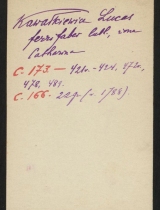 Kawatkiewicz Lucas
ferri faber cath, uxor
Catharina
C. 173 — 421v. - 424, 472v,
478, 481.
C. 166. 229v (a. 1788).